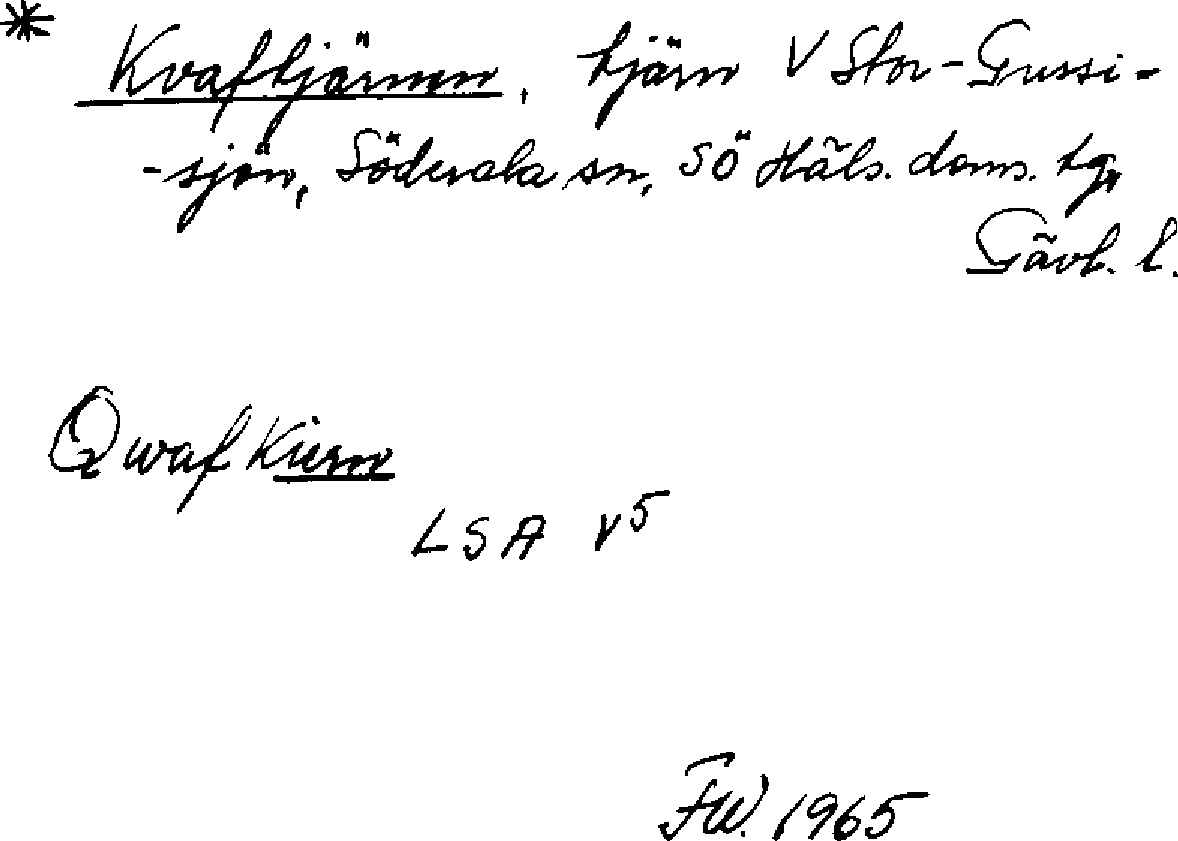 * Kvaftjärnen, tjärn V Stor-Gussi-
-sjön, Söderala sn, SÖ Häls. doms. tg,
Gävl. l.
Qwaf Kiern
LSA V5
FW. 1965